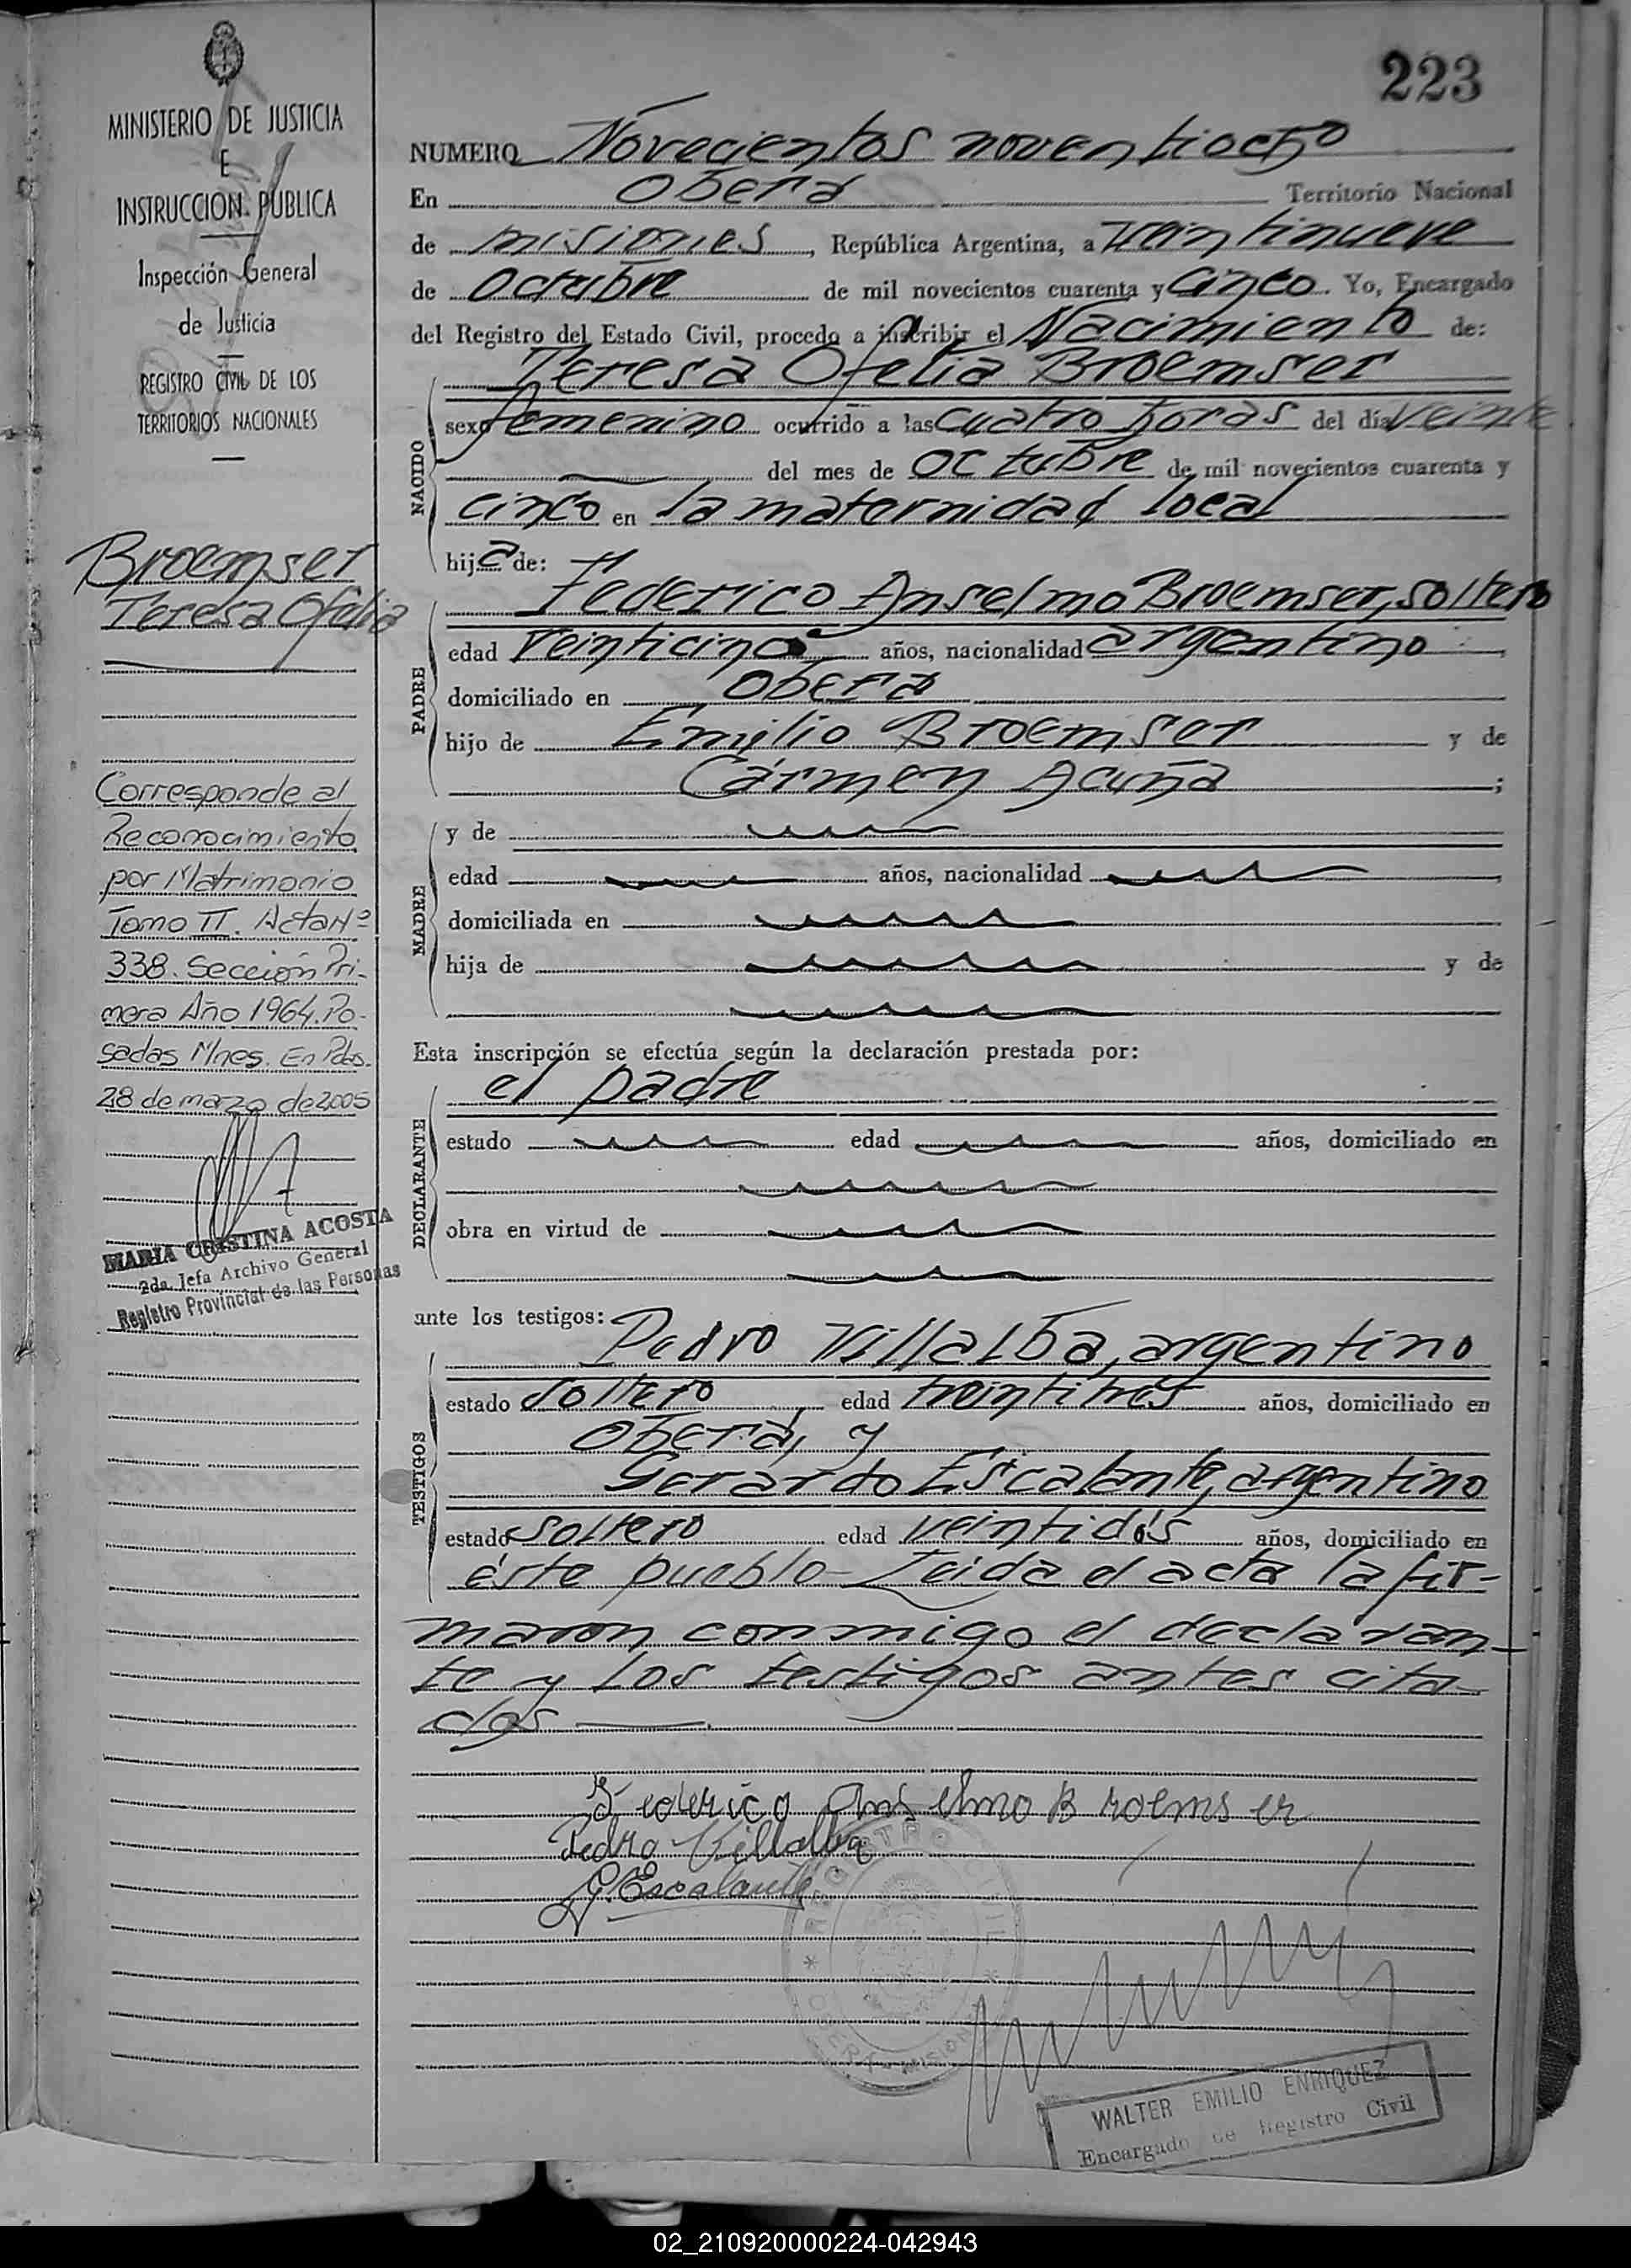 223
MINISTERIO DE JUSTICIA
E
INSTRUCCION PUBLICA
Inspección General
de Justicia
REGISTRO CIVIL DE LOS
TERRITORIOS NACIONALES
Broemser
Teresa Ofelia
Corresponde al
Reconocimiento
por Matrimonio
Tomo II. Acta Nº
338. Sección Pri-
mera Año 1964. Po-
sadas Mnes. En Pdas.
28 de marzo de 2005
MARIA CRISTINA ACOSTA
2da. Jefa Archivo General
Registro Provincial de las Personas
NUMERO Novecientos noventiocho
En Oberá Territorio Nacional
de misiones, República Argentina, a veintinueve
de octubre de mil novecientos cuarenta y cinco. Yo, Encargado
del Registro del Estado Civil, procedo a inscribir el Nacimiento de:
Teresa Ofelia Broemser
NACIDO
sexo femenino ocurrido a las cuatro horas del día veinte
del mes de octubre de mil novecientos cuarenta y
cinco en la maternidad local
hija de:
Federico Anselmo Broemser, soltero
PADRE
edad veinticinco años, nacionalidad argentino
domiciliado en Oberá
hijo de Emilio Broemser y de
Cármen Acuña ;
MADRE
y de
edad años, nacionalidad
domiciliada en
hija de y de
Esta inscripción se efectúa según la declaración prestada por:
el padre
DECLARANTE
estado edad años, domiciliado en
obra en virtud de
ante los testigos:
Pedro Villalba, argentino
TESTIGOS
estado soltero edad treintitrés años, domiciliado en
Oberá, y
Gerardo Escalante, argentino
estado soltero edad veintidós años, domiciliado en
éste pueblo- Leida el acta la fir-
maron conmigo el declaran-
te y los testigos antes cita-
dos
Federico Anselmo Broemser
Pedro Villalba
G. Escalante
REGISTRO CIVIL
OBERA - MISIONES
WALTER EMILIO ENRIQUEZ
Encargado de Registro Civil
02_210920000224-042943